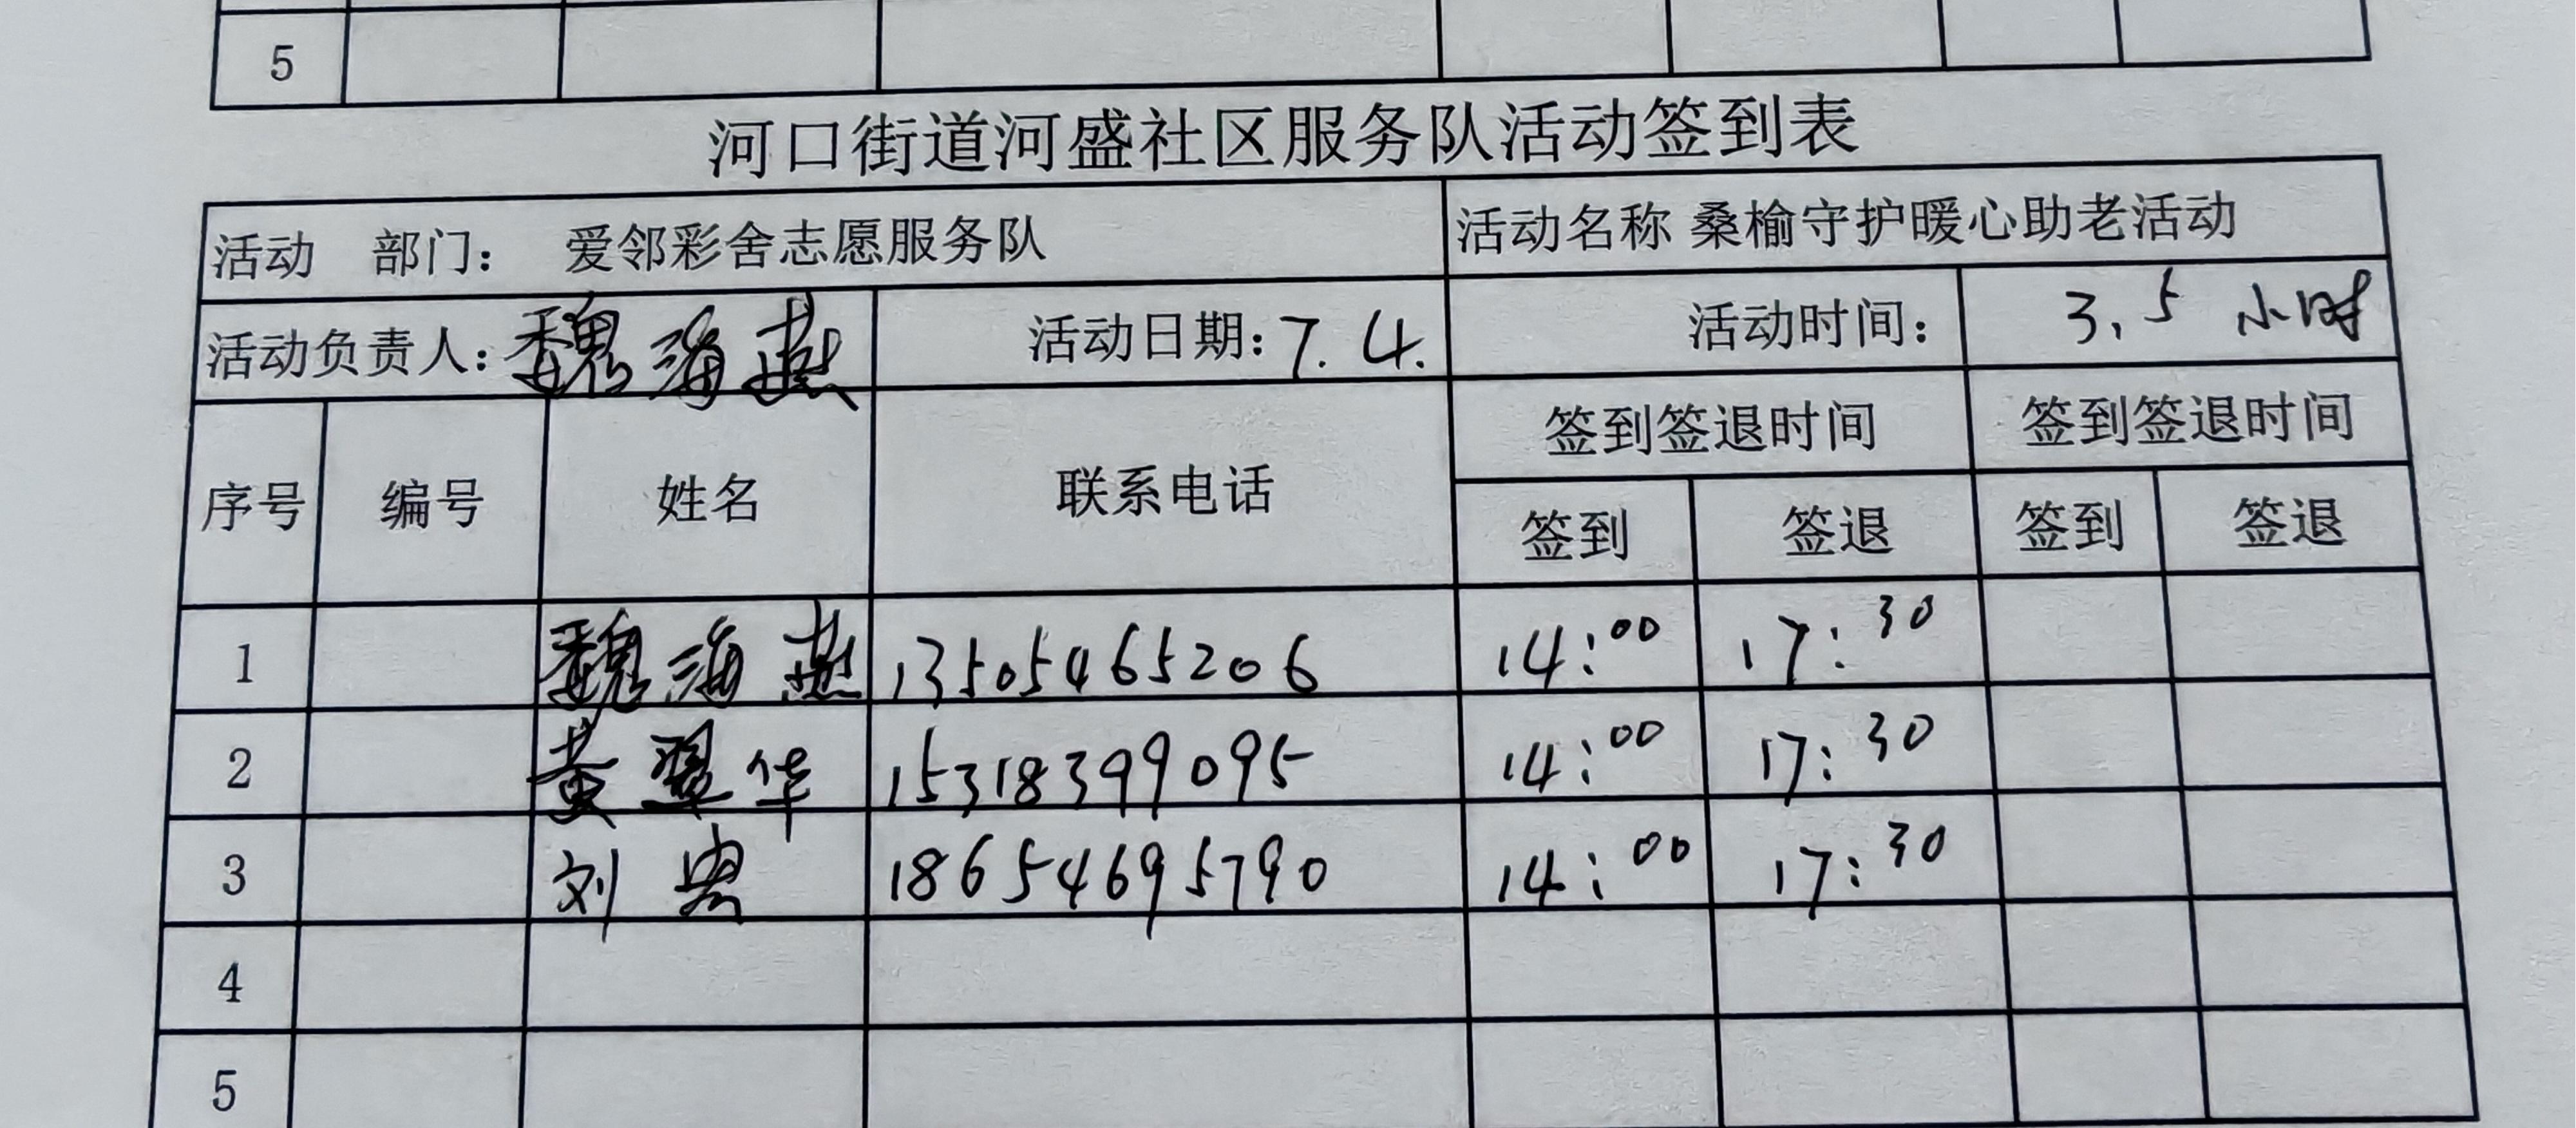 5
河口街道河盛社区服务队活动签到表
活动 部门： 爱邻彩舍志愿服务队 活动名称 桑榆守护暖心助老活动
活动负责人：魏海燕 活动日期：7.4. 活动时间： 3.5 小时
签到签退时间 签到签退时间
序号 编号 姓名 联系电话
签到 签退 签到 签退
1 魏海燕 13505465206 14:00 17:30
2 黄翠华 15318399095 14:00 17:30
3 刘 18654695790 14:00 17:30
4
5